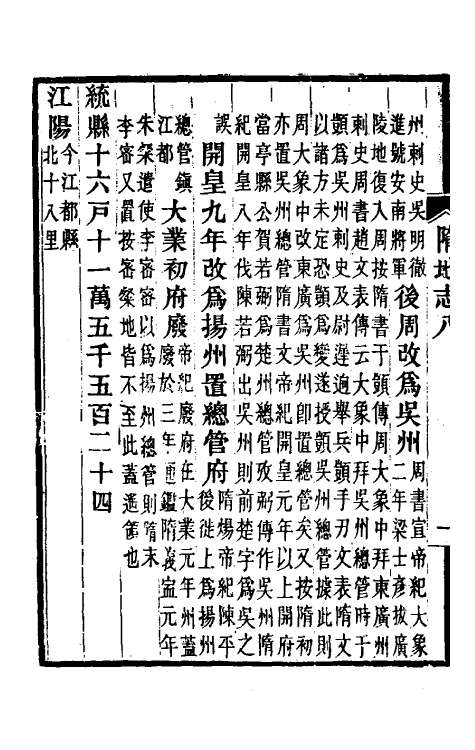 隋地志八
一
州刺史吳明徹
進號安南將軍
後周改爲吳州
周書宣帝紀大象
二年梁士彥拔廣
陵地復入周按隋書于顗傳周大象中拜東廣州
刺史周書趙文表傳云大象中拜吳州總管時于
顗爲吳州刺史及尉遲迥舉兵顗手刃文表隋文
以諸方未定恐顗爲變遂授顗吳州總管據此則
周大象中改東廣爲吳州卽置總管矣又按隋初
亦置吳州總管隋書文帝紀開皇元年以上開府
當亭縣公賀若弼爲楚州總管攷弼傳作吳州隋
紀開皇八年伐陳若弼出吳州則前楚字爲吳之
誤
開皇九年改爲揚州置總管府
隋煬帝紀陳平
後徙上爲揚州
總管鎮
江都
大業初府廢
帝紀廢府在大業元年州蓋
廢於三年通鑑隋義寧元年
朱粲遣使李密密以爲揚州總管則隋末
李密又置按密粲地皆不至此蓋遥領也
統縣十六戶十一萬五千五百二十四
江陽
今江都縣
北十八里